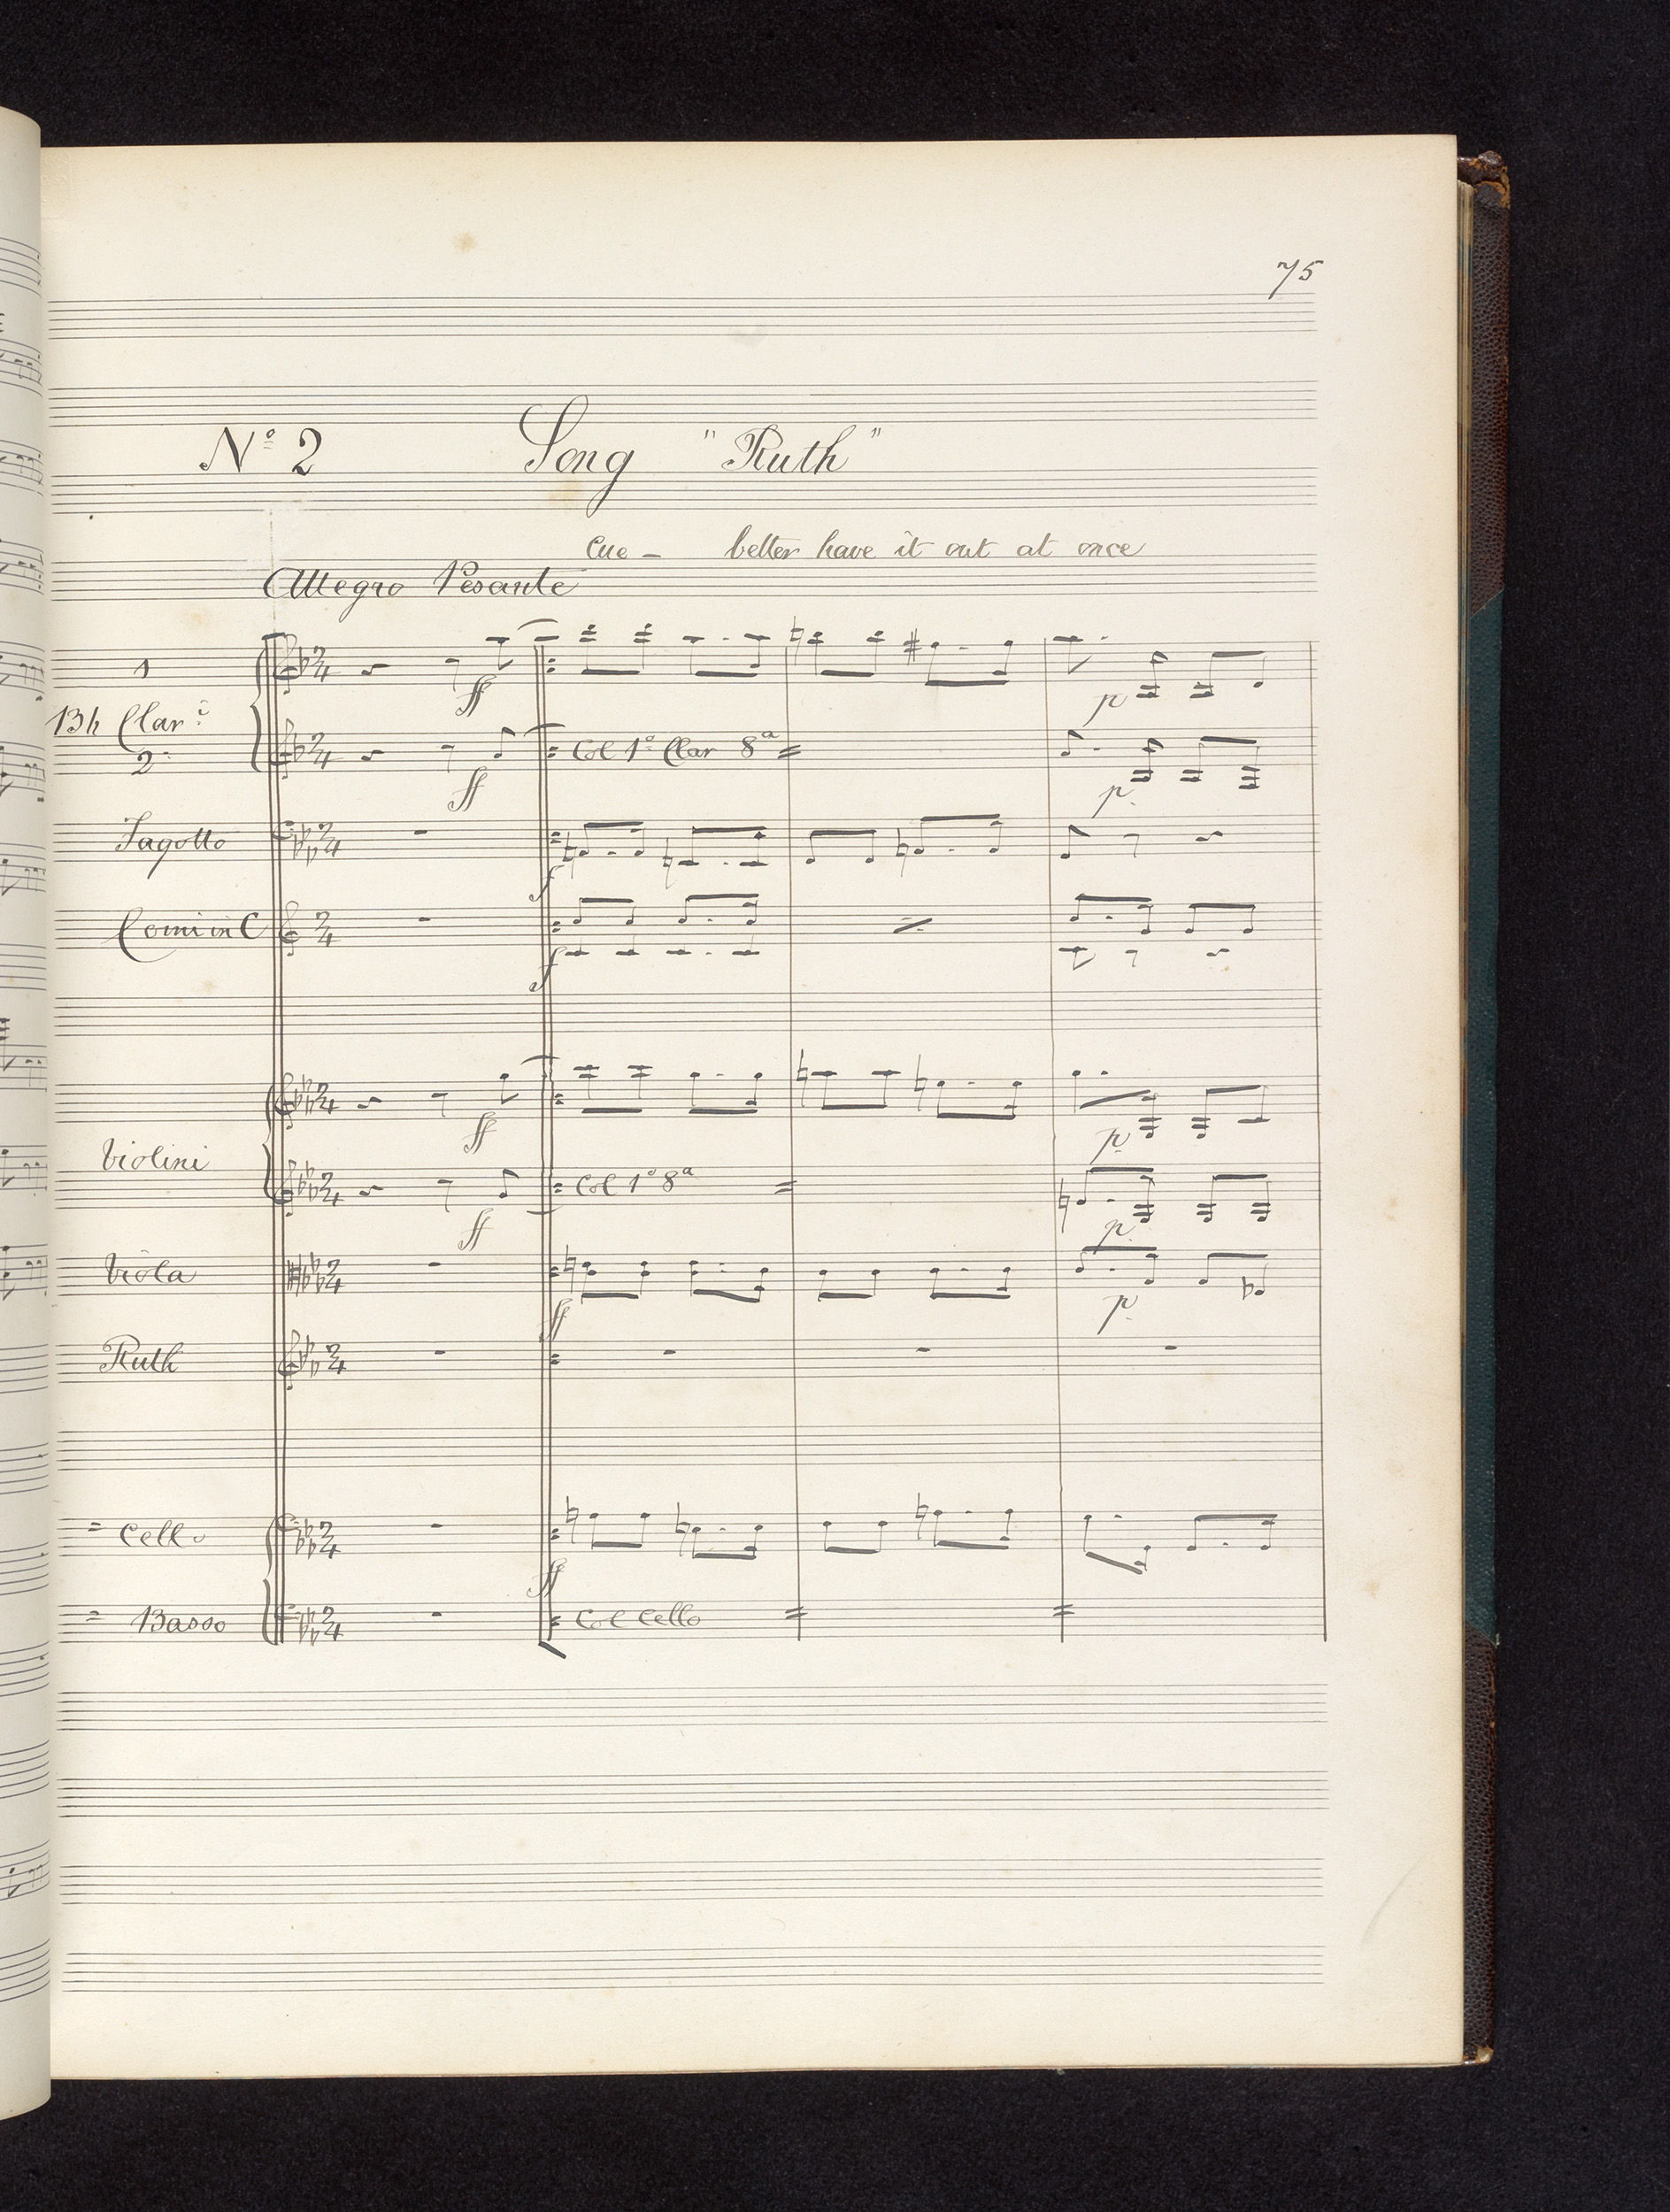 75
Nº 2 Song "Ruth"
Cue - better have it out at once
Allegro Pesante
1
ff p
Bb Clari
2º
Col 1º Clar 8a
ff p
Fagotto
f
Corni in C
f
ff p
Violini
Col 1º 8a
ff p
Viola
ff p
Ruth
Cello
ff
Basso Col Cello